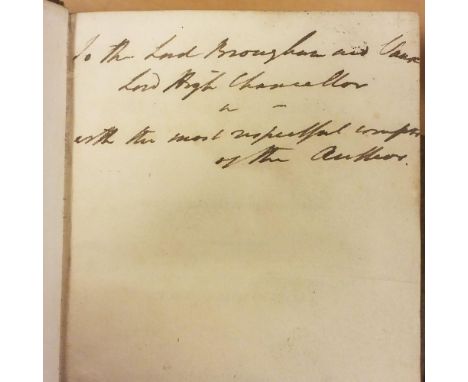 To the Lord Brougham and Vaux
Lord High Chancellor
with the most respectful
of the Author.